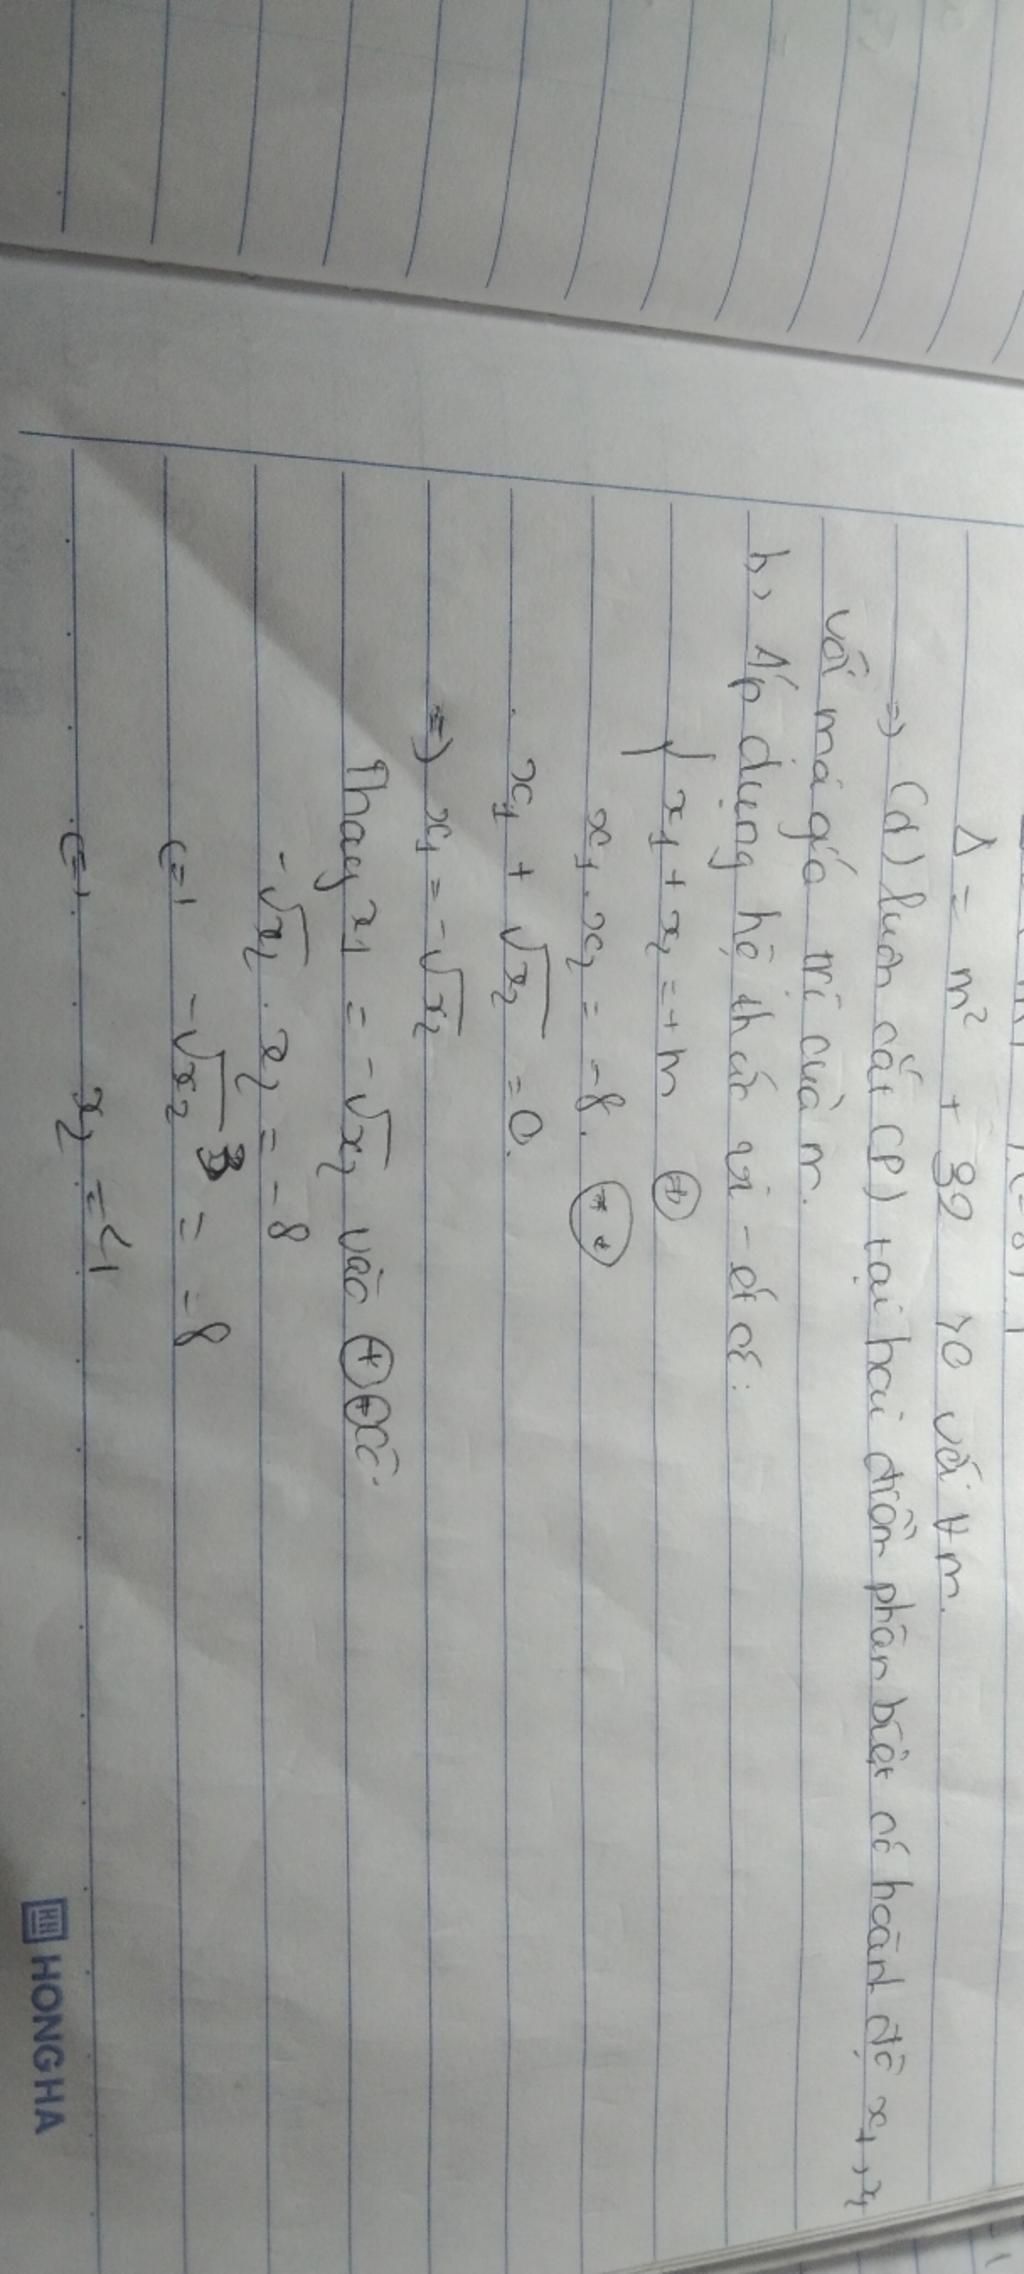 Δ = m² + 32 > 0 với ∀m.
=> (d) luôn cắt (P) tại hai điểm phân biệt có hoành độ x₁, x₂
với mọi giá trị của m.
b, Áp dụng hệ thức vi-ét có:
{ x₁ + x₂ = +m (*)
x₁.x₂ = -8. (**)
x₁ + √x₂ = 0.
=> x₁ = -√x₂
Thay x₁ = -√x₂ vào (*)(*)có:
-√x₂ . x₂ = -8
(=) -√x₂³ = -8
(=) x₂ =
HONG HA